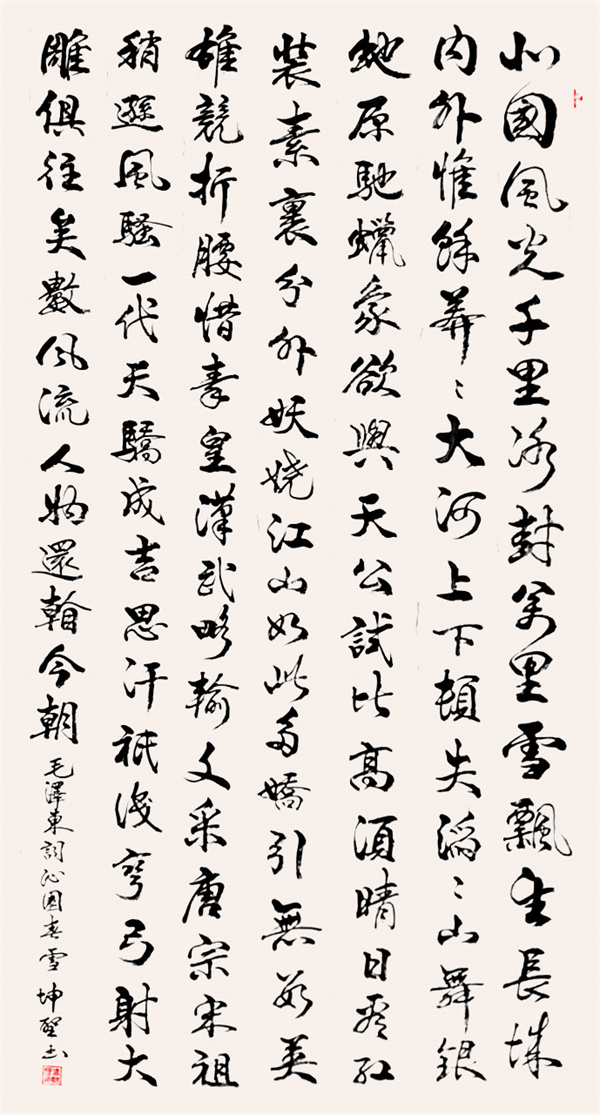 北國風光千里冰封萬里雪飄望長城
内外惟餘莽〻大河上下頓失滔〻山舞銀
蛇原馳蠟象欲與天公試比高須晴日看紅
裝素裹分外妖嬈江山如此多嬌引無數英
雄競折腰惜秦皇漢武略輸文采唐宗宋祖
稍遜風騷一代天驕成吉思汗祇识彎弓射大
雕俱往矣數風流人物還看今朝 毛澤東詞沁園春雪 坤聖书